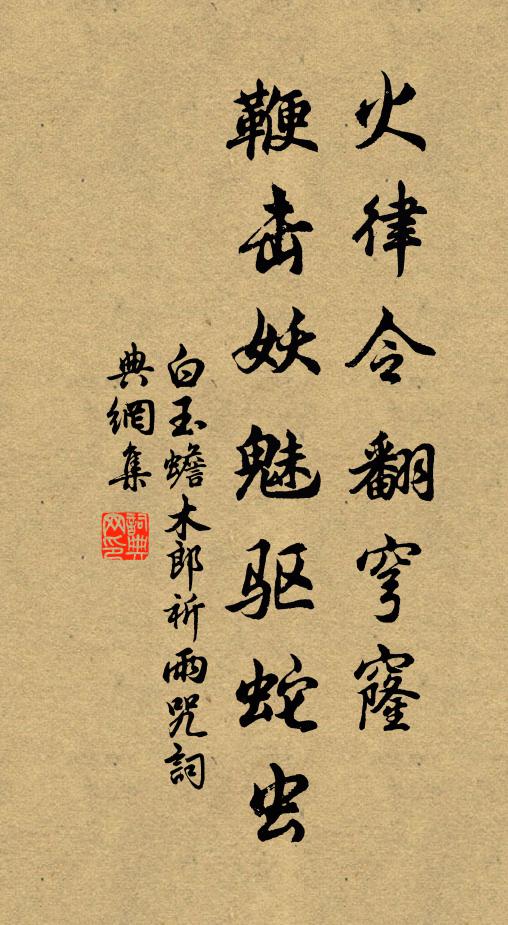 火律令翻穹窿
鞭击妖魅驱蛇虫
白玉蟾木郎祈雨咒詞
典網集
詞典网印